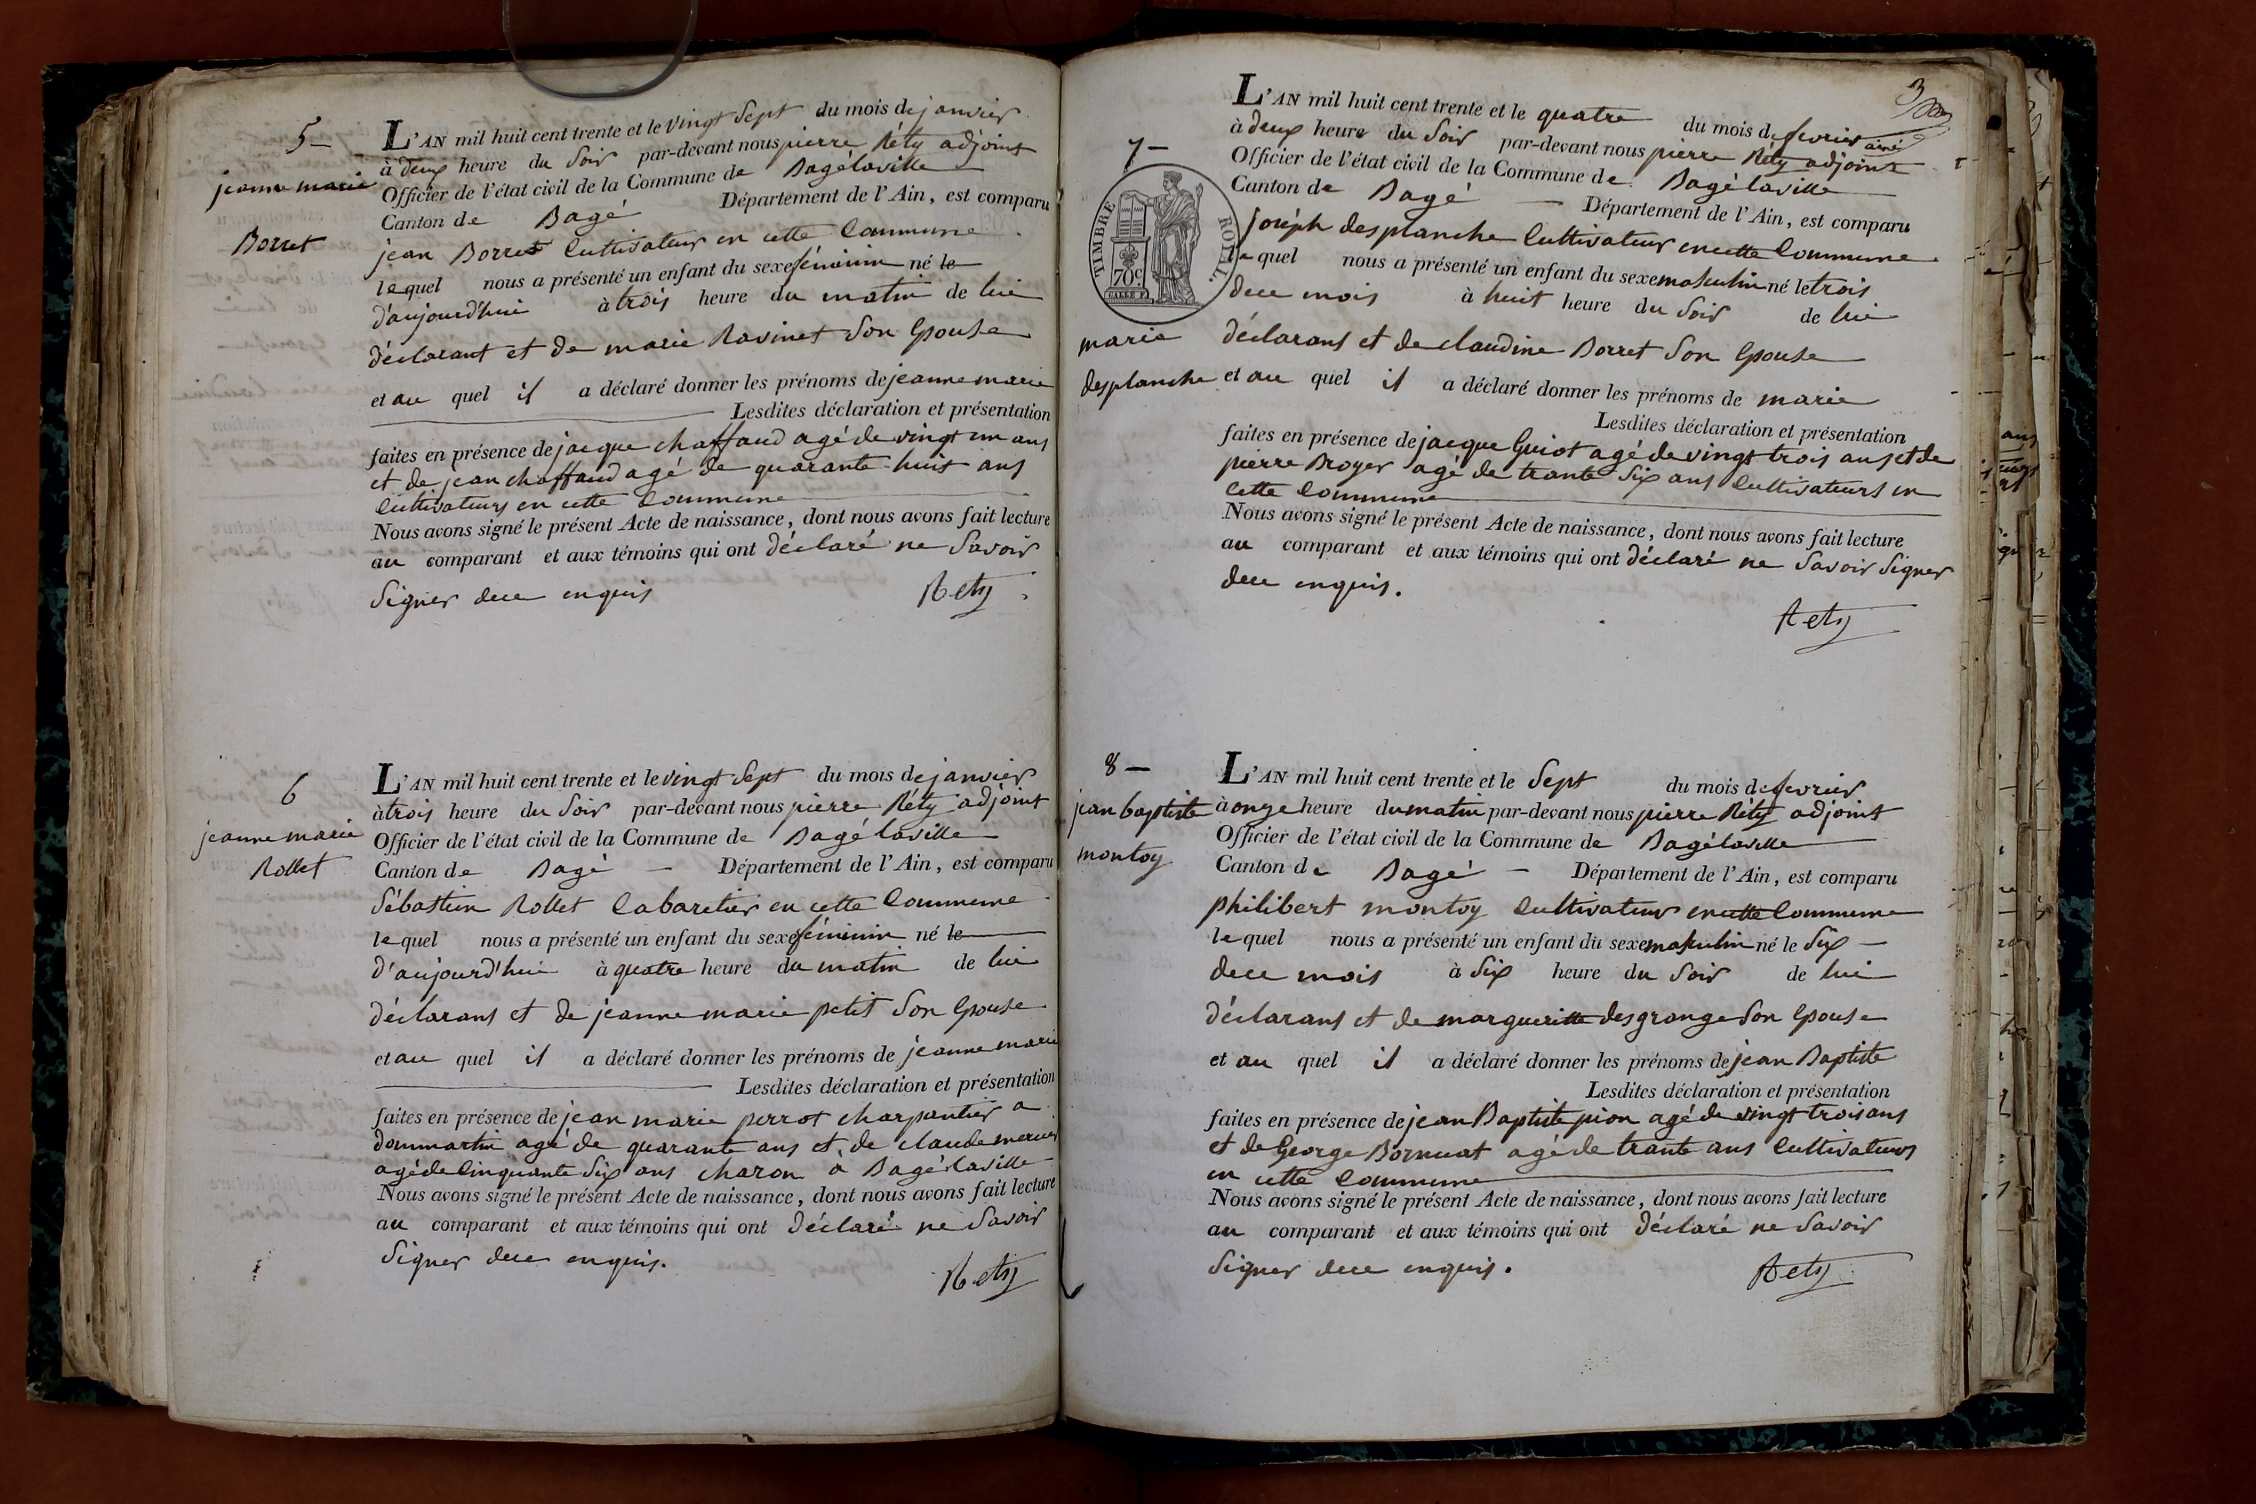 5 —
jeanne marie
Borret
L'AN mil huit cent trente et le vingt Sept du mois de janvier
à deux heure du Soir par-devant nous pierre Réty adjoint
Officier de l'état civil de la Commune de Bagélaville
Canton de Bagé Département de l'Ain, est comparu
jean Borret Cultivateur en cette Commune
lequel nous a présenté un enfant du sexe féminin né le
d'aujourd'hui à trois heure du matin de lui
déclarant et de marie Ravinet Son Epouse
et au quel il a déclaré donner les prénoms de jeanne marie
Lesdites déclaration et présentation
faites en présence de jacque chaffaud agé de vingt un ans
et de jean chaffaud agé de quarante huit ans
Cultivateurs en cette Commune
Nous avons signé le présent Acte de naissance, dont nous avons fait lecture
au comparant et aux témoins qui ont déclaré ne Savoir
Signer dece enquis
Rety
6
jeanne marie
Rollet
L'AN mil huit cent trente et le vingt Sept du mois de janvier
à trois heure du Soir par-devant nous pierre Réty adjoint
Officier de l'état civil de la Commune de Bagélaville
Canton de Bagé — Département de l'Ain, est comparu
Sébastien Rollet Cabaretier en cette Commune
lequel nous a présenté un enfant du sexe féminin né le
d'aujourd'hui à quatre heure du matin de lui
déclarans et de jeanne marie petit Son Epouse
et au quel il a déclaré donner les prénoms de jeanne marie
Lesdites déclaration et présentation
faites en présence de jean marie perrot charpantier a
dommartin agé de quarante ans et de claude mercier
agé de Cinquante Six ans charon a Bagélaville
Nous avons signé le présent Acte de naissance, dont nous avons fait lecture
au comparant et aux témoins qui ont déclaré ne Savoir
Signer dece enquis.
Rety
3
7 —
TIMBRE ROYAL
70c
marie
desplanche
L'AN mil huit cent trente et le quatre du mois de fevrier
à deux heure du Soir par-devant nous pierre Réty ainé adjoint
Officier de l'état civil de la Commune de Bagélaville
Canton de Bagé — Département de l'Ain, est comparu
joseph desplanche Cultivateur en cette Commune
lequel nous a présenté un enfant du sexe maskulin né le trois
dece mois à huit heure du Soir de lui
déclarans et de claudine Borret Son Epouse
et au quel il a déclaré donner les prénoms de marie
Lesdites déclaration et présentation
faites en présence de jacque Guiot agé de vingt trois ans et de
pierre Broyer agé de trante Six ans Cultivateurs en
cette Commune
Nous avons signé le présent Acte de naissance, dont nous avons fait lecture
au comparant et aux témoins qui ont déclaré ne Savoir Signer
dece enquis.
Rety
8 —
jean baptiste
montoy
L'AN mil huit cent trente et le Sept du mois de fevrier
à onze heure du matin par-devant nous pierre Réty adjoint
Officier de l'état civil de la Commune de Bagélaville
Canton de Bagé — Département de l'Ain, est comparu
philibert montoy Cultivateur en cette Commune
lequel nous a présenté un enfant du sexe maskulin né le Six —
dece mois à Six heure du Soir de lui
déclarans et de margueritte desgrange Son Epouse
et au quel il a déclaré donner les prénoms de jean Baptiste
Lesdites déclaration et présentation
faites en présence de jean Baptiste pion agé de vingt trois ans
et de George Bornuat agé de trante ans Cultivateurs
en cette Commune
Nous avons signé le présent Acte de naissance, dont nous avons fait lecture
au comparant et aux témoins qui ont déclaré ne Savoir
Signer dece enquis.
Rety